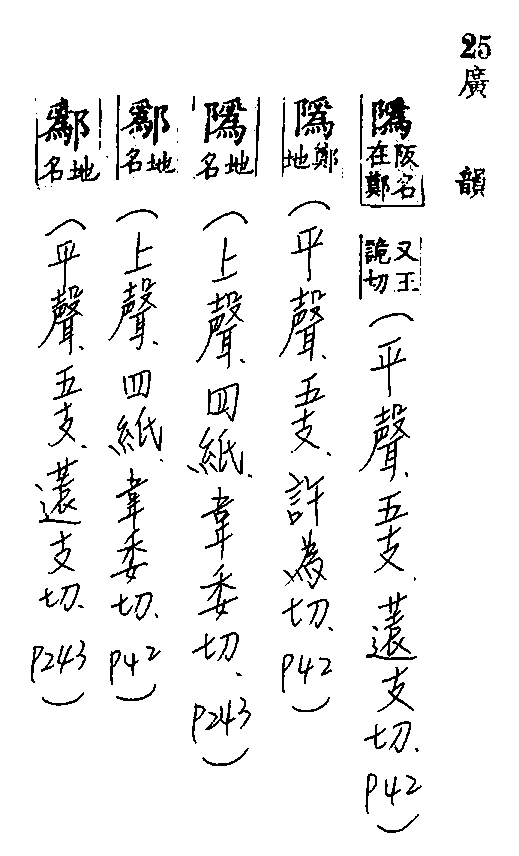 25廣韻
隖阪名在鄭又王詭切（平聲、五支、薳支切、P42）
隖鄭地（平聲、五支、許為切、P42）
隖地名（上聲、四紙、韋委切、P243）
鄬地名（上聲、四紙、韋委切、P42）
鄬地名（平聲、五支、薳支切、P243）